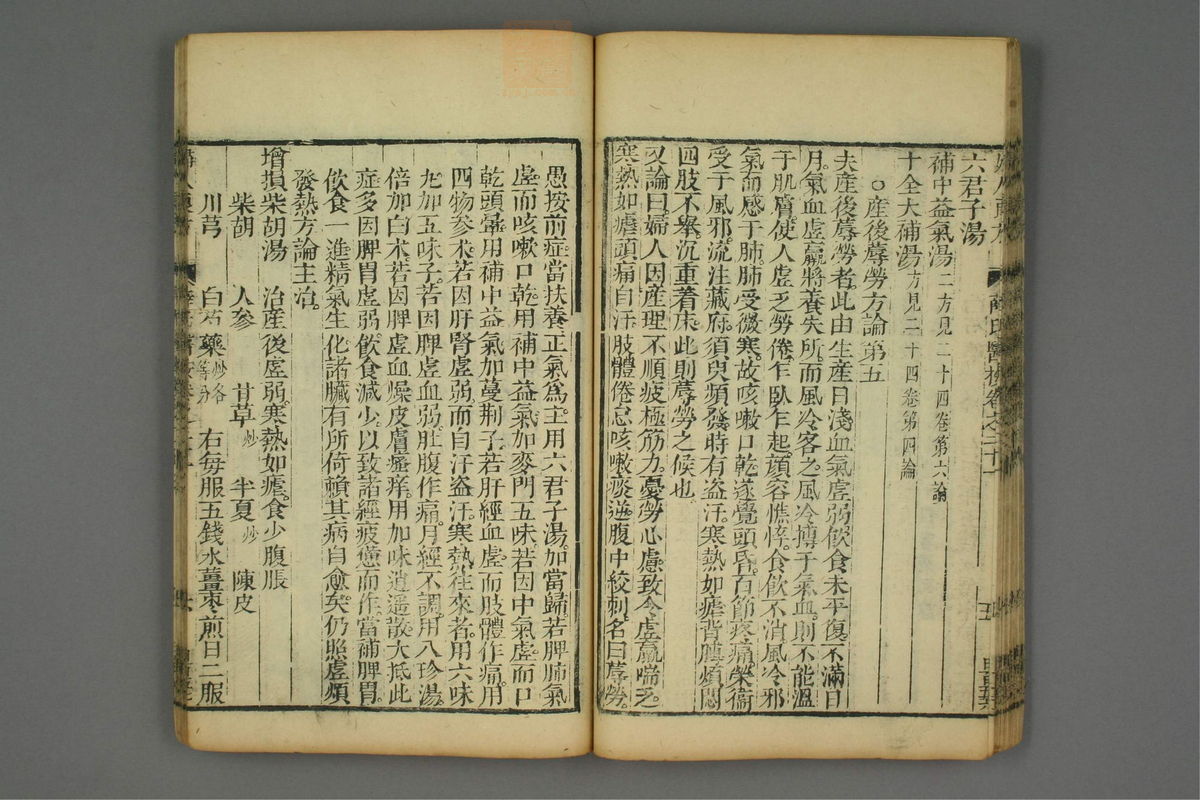 六君子湯
補中益氣湯 二方見二十四卷第六論
十全大補湯 方見二十四卷第四論
○產後蓐勞方論第五
夫產後蓐勞者此由生產日淺血氣虛弱飲食未平復不滿日
月氣血虛羸將養失所而風冷客之風冷搏于氣血則不能溫
于肌膚使人虛乏勞倦乍臥乍起顏容憔悴食飲不消風冷邪
氣而感于肺肺受微寒故咳嗽口乾遂覺頭昏百節疼痛榮衞
受于風邪流注藏府須臾頻發時有盜汗寒熱如瘧背膊煩悶
四肢不舉沉重着床此則蓐勞之候也
又論曰婦人因產理不順疲極筋力憂勞心慮致令虛羸喘乏
寒熱如瘧頭痛自汗肢體倦怠咳嗽痰逆腹中絞刺名曰蓐勞
愚按前症當扶養正氣爲主用六君子湯加當歸若脾肺氣
虛而咳嗽口乾用補中益氣加麥門五味若因中氣虛而口
乾頭暈用補中益氣加蔓荆子若肝經血虛而肢體作痛用
四物參术若因肝腎虛弱而自汗盜汗寒熱往來者用六味
丸加五味子若因脾虛血弱肚腹作痛月經不調用八珍湯
倍加白术若因脾虛血燥皮膚瘙痒用加味逍遥散大抵此
症多因脾胃虛弱飲食減少以致諸經疲憊而作當補脾胃
飲食一進精氣生化諸臟有所倚賴其病自愈矣仍照虛煩
發熱方論主治
增損柴胡湯 治產後虛弱寒熱如瘧食少腹脹
柴胡 人參 甘草炒 半夏炒 陳皮
川芎 白芍藥炒各等分 右每服五錢水薑棗煎日二服